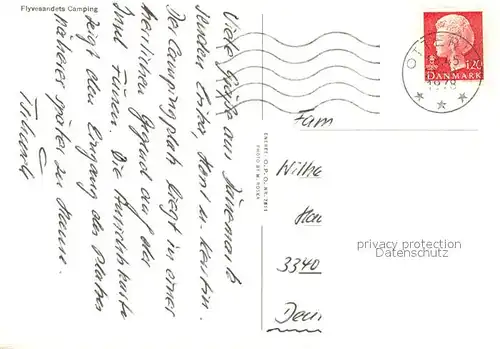 Flyvesandets Camping
Viele Grüße aus Dänemark
senden
Der Campingplatz liegt in einer
herrlichen Gegend auf der
Insel Fünen. Die Ansichtskarte
zeigt den Eingang des Platzes
näheres später zu Hause.
ENERET. O.P.
PHOTO BY
OTTERUP
1978
120
DANMARK
Fam
Wilhe
Ha
3340
privacy protection
Datenschutz